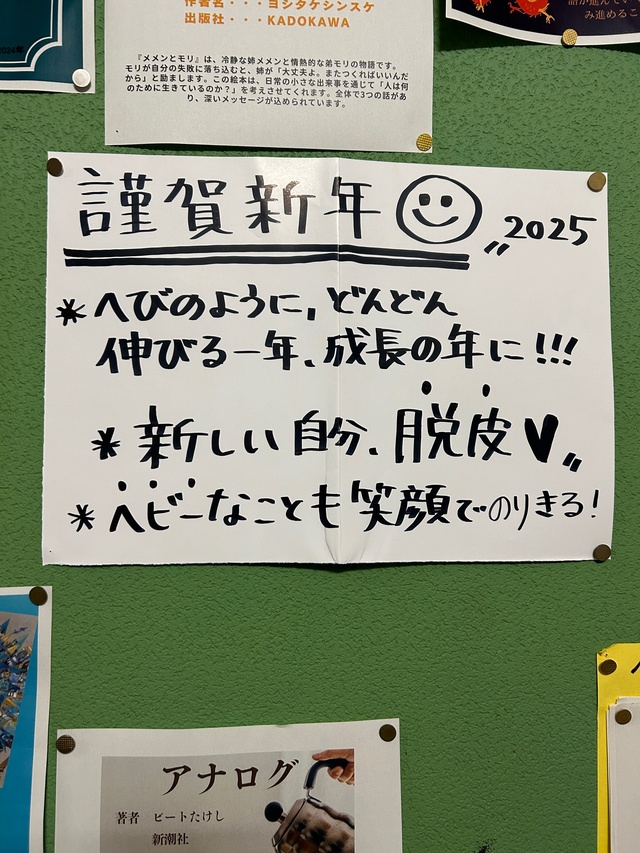 作者名・・・ヨシタケシンスケ
出版社・・・KADOKAWA
『メメンとモリ』は、冷静な姉メメンと情熱的な弟モリの物語です。
モリが自分の失敗に落ち込むと、姉が「大丈夫よ。またつくればいいんだ
から」と励まします。この絵本は、日常の小さな出来事を通じて「人は何
のために生きているのか？」を考えさせてくれます。全体で3つの話があ
り、深いメッセージが込められています。
み進めるこ
謹賀新年 2025
*へびのように、どんどん
伸びる一年、成長の年に!!!
*新しい自分、脱皮♥
*ヘビーなことも笑顔でのりきる!
アナログ
著者 ビートたけし
新潮社